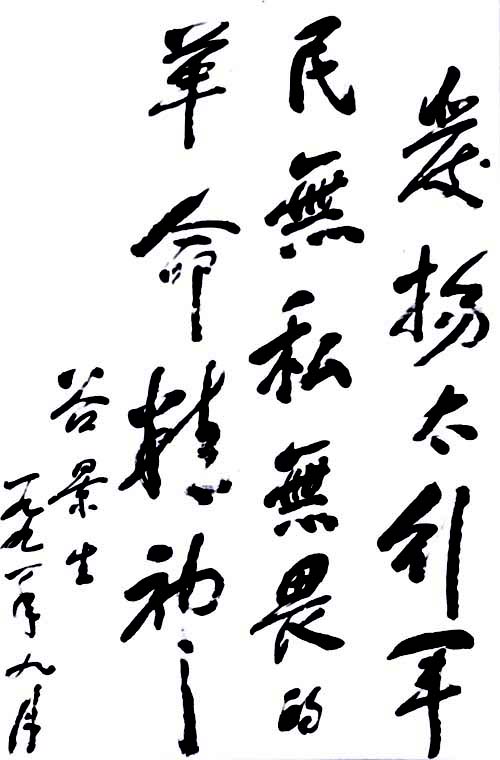 發揚太行军
民無私無畏的
革命精神
谷景生
一九九一年九月